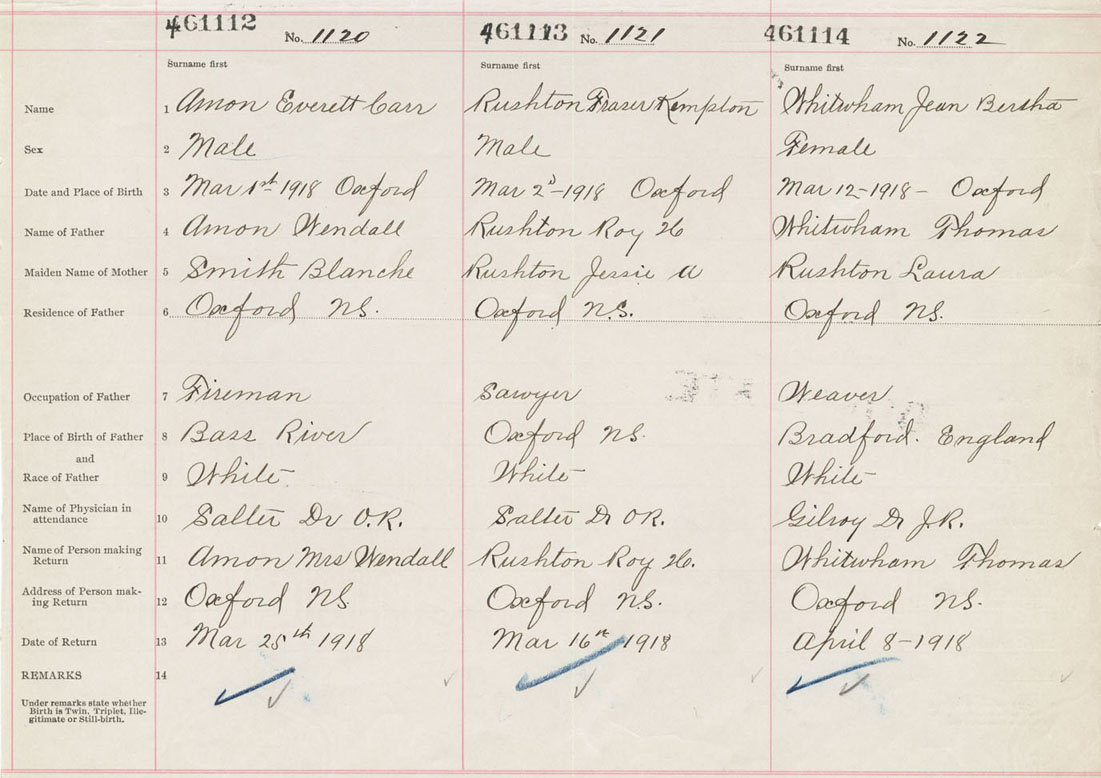 461112 No. 1120 461113 No. 1121 461114 No. 1122
Surname first Surname first Surname first
Name 1 Amon Everett Carr Rushton Fraser Kempton Whitwham Jean Bertha
Sex 2 Male Male Female
Date and Place of Birth 3 Mar 1st 1918 Oxford Mar 2d-1918 Oxford Mar 12-1918- Oxford
Name of Father 4 Amon Wendall Rushton Roy H Whitwham Thomas
Maiden Name of Mother 5 Smith Blanche Rushton Jessie A Rushton Laura
Residence of Father 6 Oxford NS. Oxford N.S. Oxford NS.
Occupation of Father 7 Fireman Sawyer Weaver
Place of Birth of Father 8 Bass River Oxford NS. Bradford. England
and
Race of Father 9 White. White White
Name of Physician in
attendance 10 Salter Dr O.R. Salter Dr OR. Gilroy Dr J.R.
Name of Person making
Return 11 Amon Mrs Wendall Rushton Roy H. Whitwham Thomas
Address of Person mak-
ing Return 12 Oxford NS. Oxford NS. Oxford NS.
Date of Return 13 Mar 25th 1918 Mar 16th 1918 April 8-1918
REMARKS 14
Under remarks state whether
Birth is Twin, Triplet, Ille-
gitimate or Still-birth.